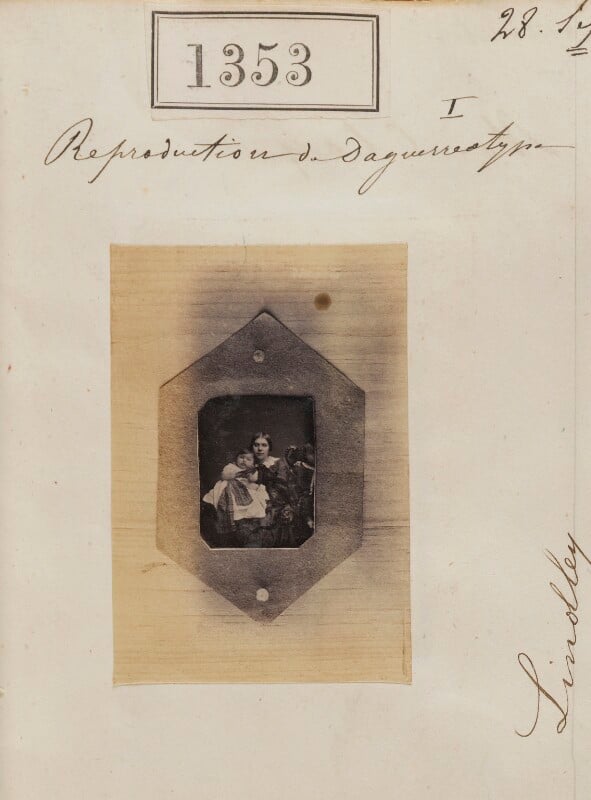 1353
28. Se
I
Reproduction de Daguerreotype
Lindley